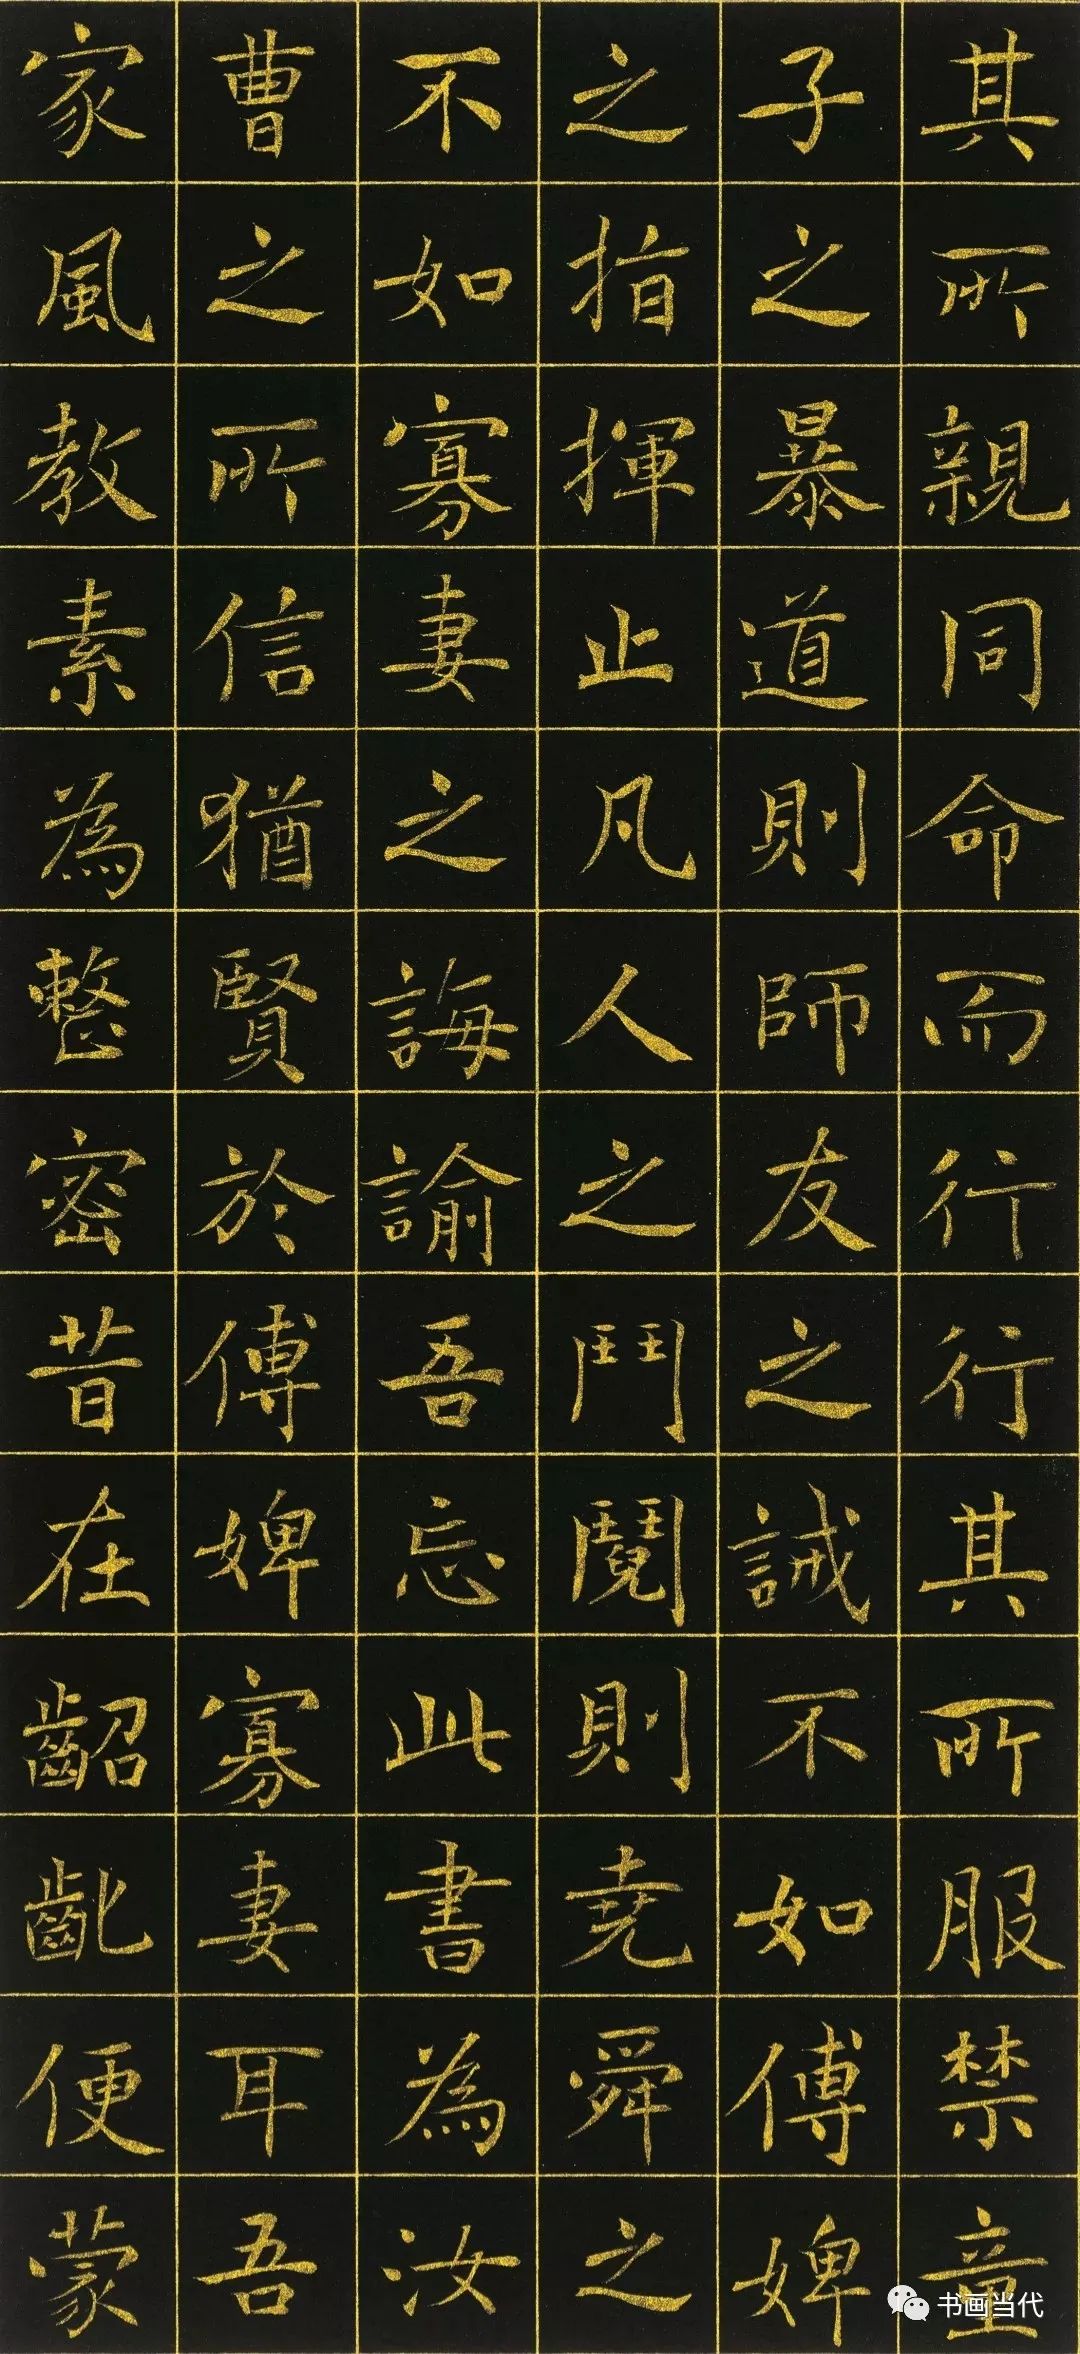 其所親同命而行行其所服禁童
子之暴道則師友之誡不如傅婢
之指揮止凡人之鬥鬩則堯舜之
不如寡妻之誨諭吾忘此書為汝
曹之所信猶賢於傅婢寡妻耳吾
家風教素為整密昔在齠齔便蒙
书画当代